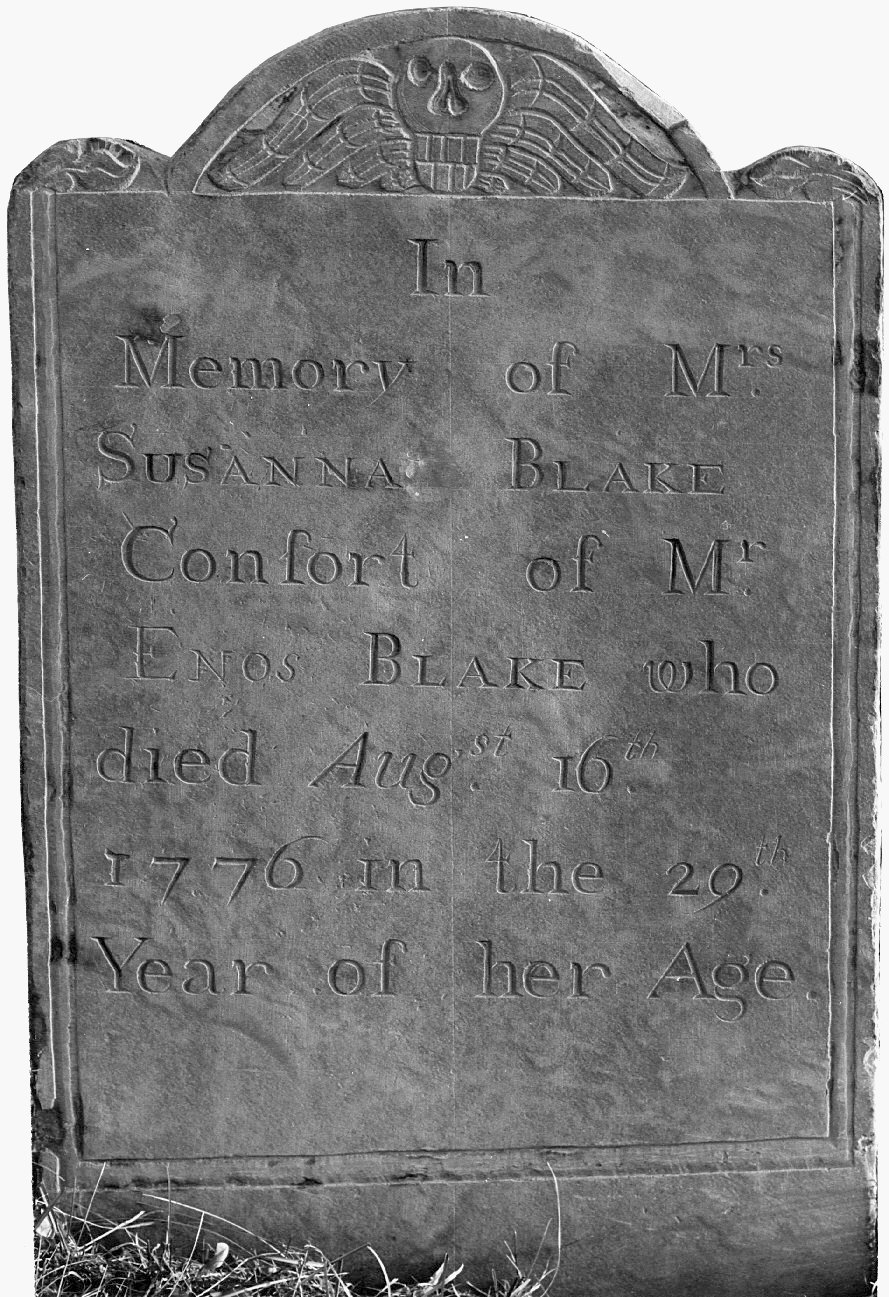 In
Memory of Mrs.
SUSANNA BLAKE
Conſort of Mr.
ENOS BLAKE who
died Augst. 16th.
1776 in the 29th.
Year of her Age.